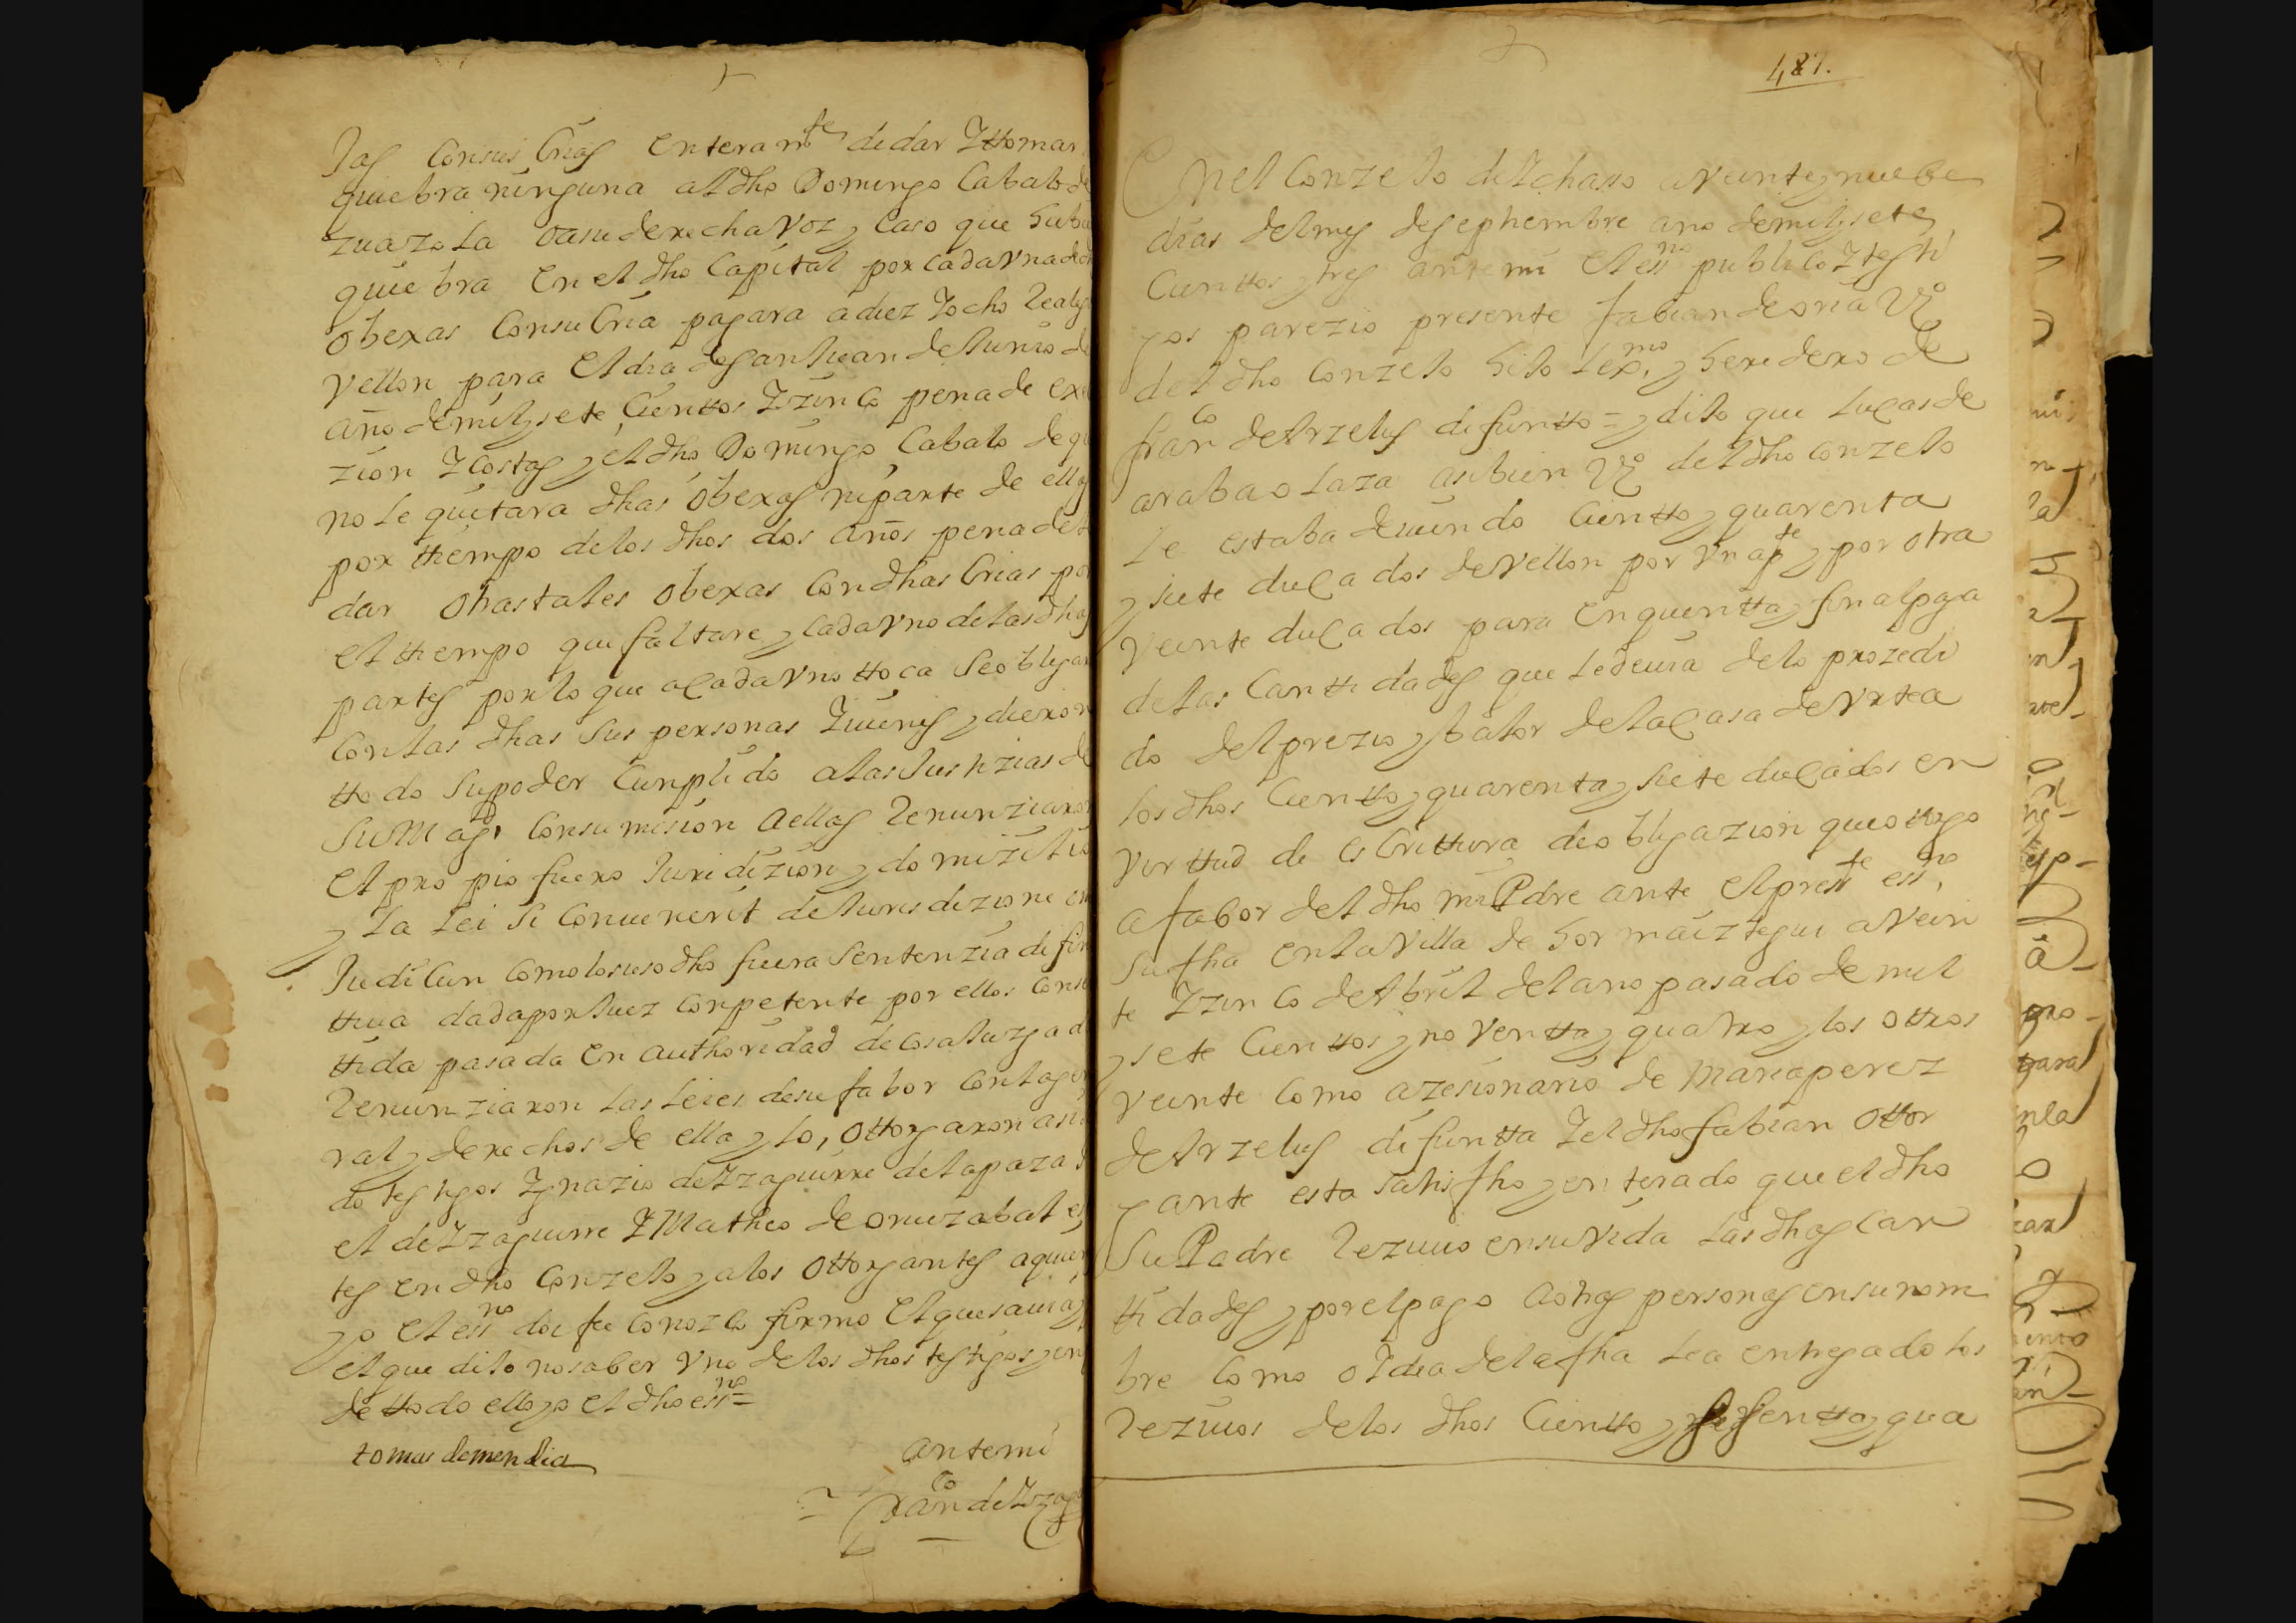 Jas Consus Crias enteramte de dar Y ttomar
quiebra ninguna al dho Domingo Cabalo de
zuazola o a su derecha voz y Caso que hubie
quiebra En el dho Capital por cada vna de dh
obexas Con su Cria pagara a diez Y ocho Reales
vellon para El dia de san Juan de Junio de
año de mil y sete Cienttos Y zinco pena de exe
zion Y costas y el dho Domingo Cabalo de qu
no le quitara dhas obexas ni parte de ellas
por ttiempo de los dhos dos años pena de
dar otras tales obexas Con dhas Crias por
el ttiempo que faltare y cada vno de las dhas
partes por lo que a Cada vno ttoca Se obligar
Con las dhas Sus personas Y vienes y dieron
ttodo Su poder Cumplido a las Justizias de
Su Magd Con sumision a ellas Renunziaron
El propio fuero Juridizion y domizilio
y la lei si Convenerit de Jurisdizione on
Judicun como lo suso dho fuera Sentenzia difin
ttiva dada por Juez conpetente por ellos conse
ttida pasada en authoridad de cosa Juzgada
Renunziaron las leies de su fabor con la gen
ral y derechos de ella y lo, ottorgaron asi
do testigos Ygnazio de Yzaguirre de la paza
el de Yzaguirre Y Matheo de oruezabal es
tes en dho Conzelo y a los ottorgantes a quien
yo el essno doi fee conozco firmo el que sauia y
el que dijo no saber vno de los dhos testigos y en
de ttodo ello yo el dho essno =
tomas de mendia
ante mi
Franco de Yzag
487.
En el Conzelo de Ychaso a veinte y nuebe
dias del mes de sephiembre año de mil y sete
Cienttos y tres ante mi el essno publico Y testi
gos parezio presente fabian de oria Vo
del dho Conzelo hijo lexmo y heredero de
franco de Arzelus difuntto = y dijo que lucas de
arabaolaza asi bien Vo del dho conzelo
le estaba deuiendo Cientto y quarenta
y siete ducados de vellon por vna pte y por otra
veinte ducados para en quentta y final paga
de las Canttidades que le deuia de lo prozedi
do del prezio y balor de la Casa de vrtea
los dhos Cientto y quarenta y siete ducados en
virttud de esCrittura de obligazion que otorgo
a fabor del dho mi Padre ante el preste essno
su fha en la villa de hormaiztegui a vein
te Y zinco de Abril del ano pasado de mil
y sete Cienttos y noventta y quatro y los ottros
veinte Como azesionario de Maria perez
de Arzelus difuntta Y el dho fabian ottor
gante esta satisfho y enterado que el dho
Su Padre Rezuio en su vida las dhas Can
ttidades y por el pago a otras personas en su nom
bre Como oY dia de la fha le a entregado los
Rezuios de los dhos Cientto y sesentta y qua